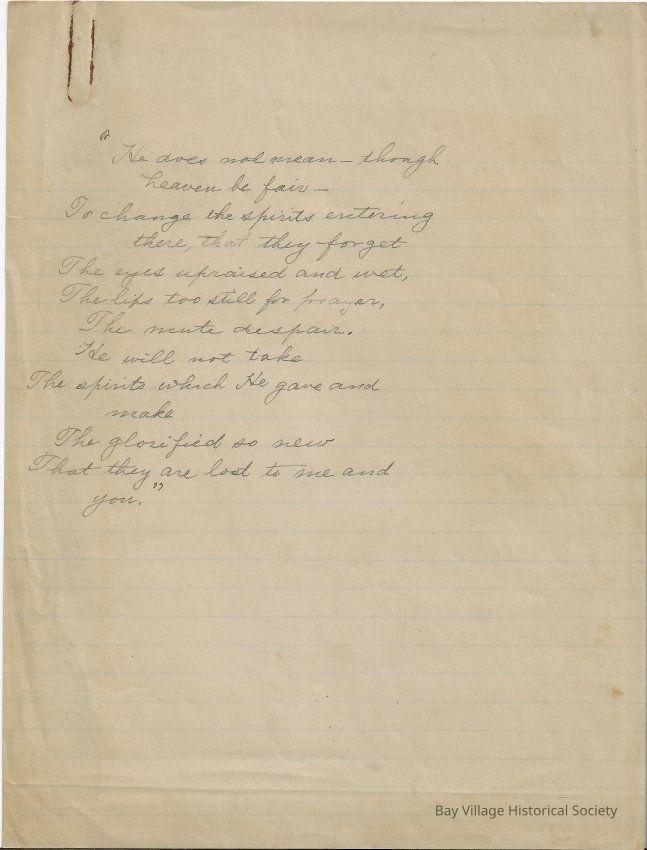 "He does not mean – though
heaven be fair –
To change the spirits entering
there, that they forget
The eyes upraised and wet,
The lips too still for prayer,
The mute despair.
He will not take
The spirits which He gave and
make
The glorified so new
That they are lost to me and
you."
Bay Village Historical Society